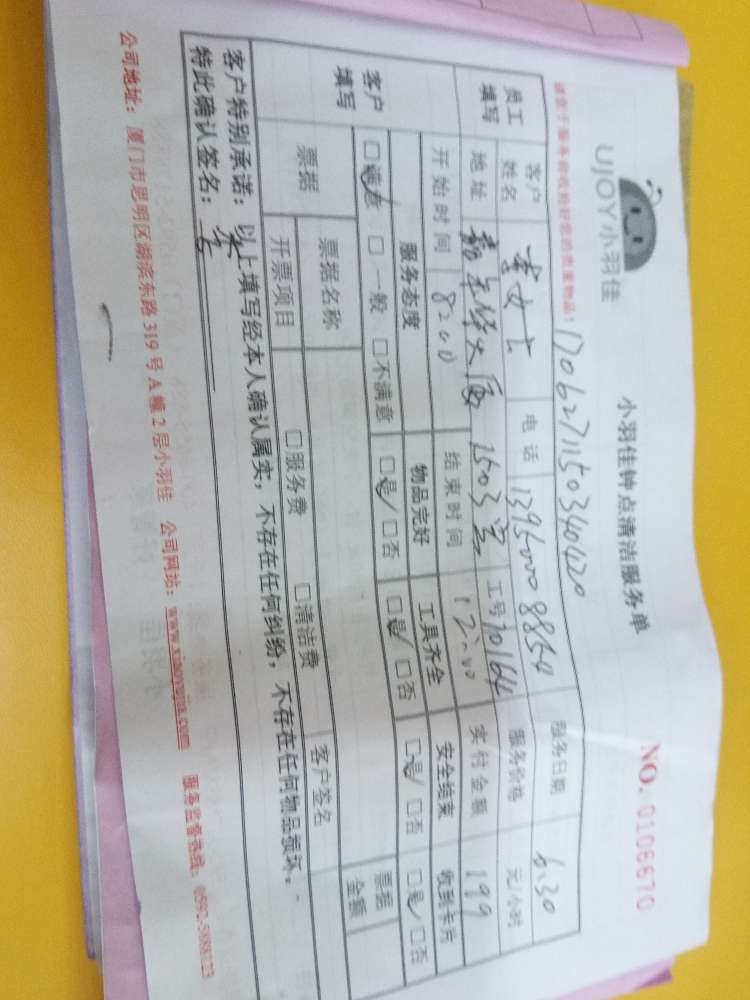 UJOY小羽佳
小羽佳钟点清洁服务单
NO. 0106670
请您于服务前收拾好您的贵重物品！
170627115034042
员工填写 客户姓名 李女士 电话 13950008854 服务日期 6.30
地址 大厦 1503室 工号 30164 服务价格 元/小时
开始时间 8:00 结束时间 12:00 实付金额 199
客户填写 服务态度 物品完好 工具齐全 安全结束 收到卡片
□满意 □一般 □不满意 □是/□否 □是/□否 □是/□否 □是/□否
票据 票据名称 客户签名 票据金额
开票项目 □服务费 □清洁费
客户特别承诺：以上填写经本人确认属实，不存在任何纠纷，不存在任何物品损坏。
特此确认签名：
公司地址：厦门市思明区湖滨东路319号A幢2层小羽佳 公司网站：www.xiaoyujia.com 服务监督热线：0592-5888123